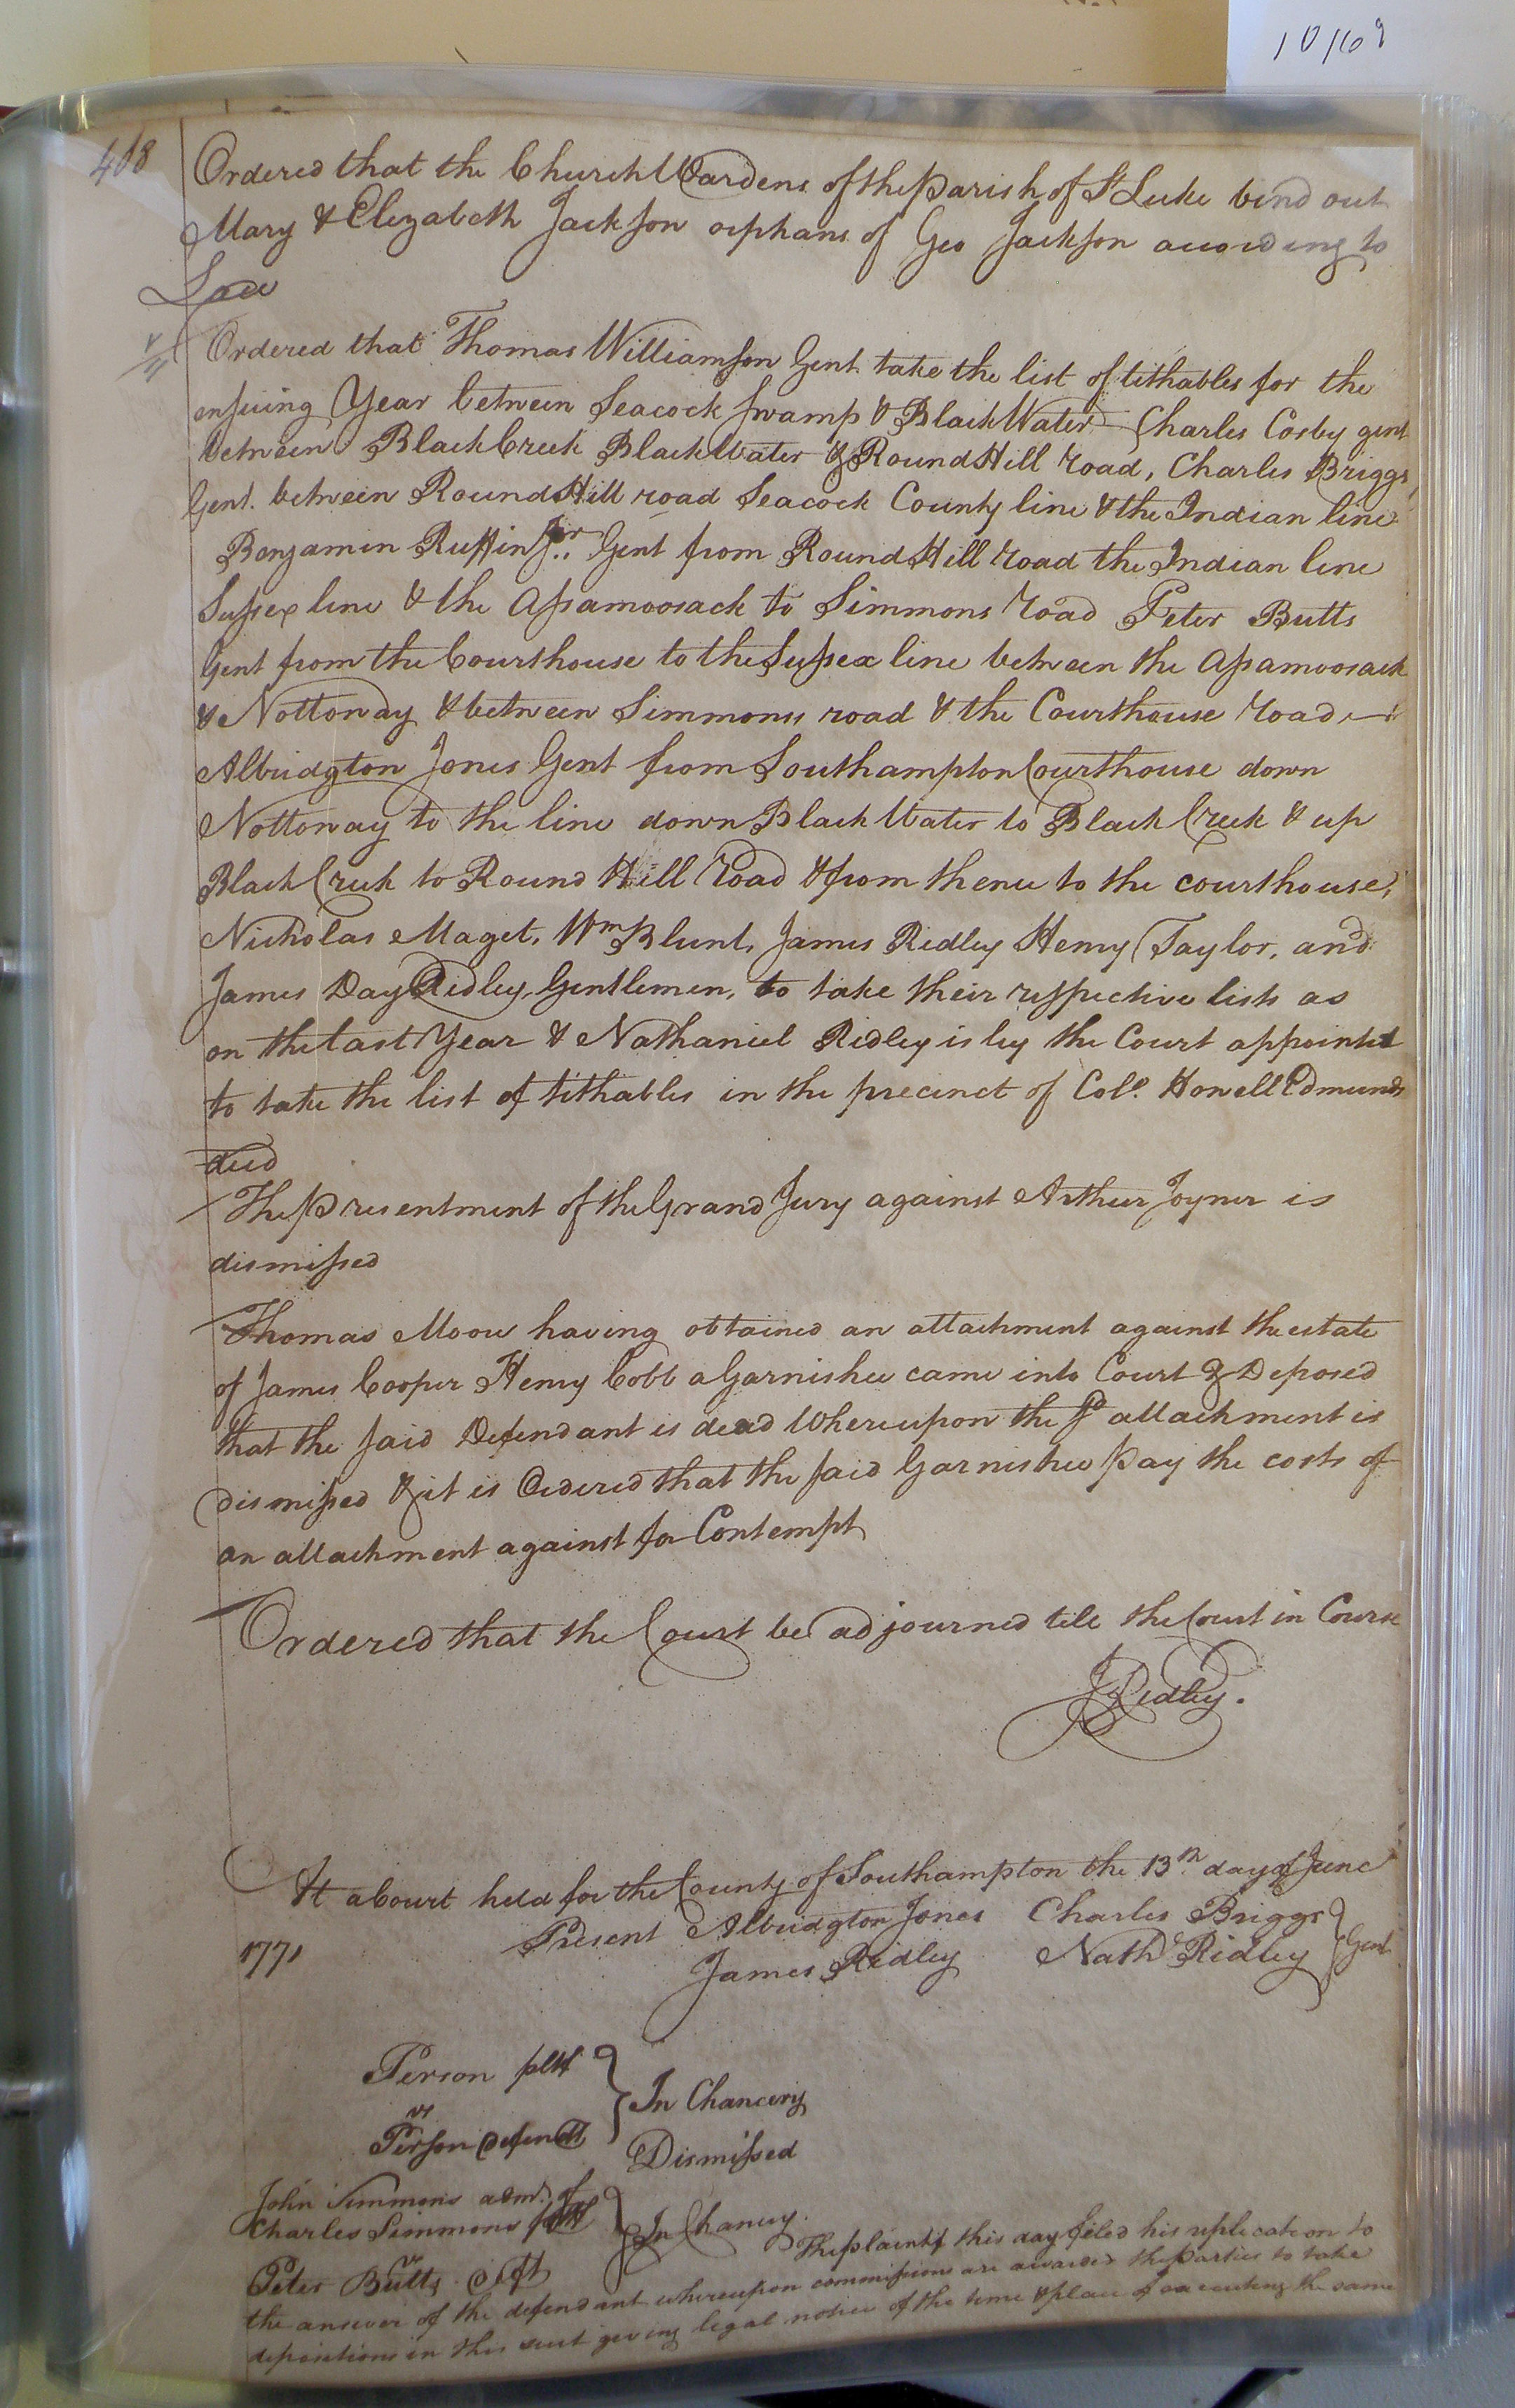 10/69
408
Ordered that the Church Wardens of the Parish of St Luke bind out
Mary & Elizabeth Jackson orphans of Geo Jackson according to
Law
Ordered that Thomas Williamson Gent take the list of tithables for the
ensuing Year between Seacock Swamp & BlackWater Charles Cosby gent
between BlackCreek BlackWater & Round Hill road, Charles Briggs
Gent. between Round Hill road Seacock County line & the Indian line
Benjamin Ruffin Jr. Gent from Round Hill road the Indian line
Sussex line & the Apamoosack to Simmons road Peter Butts
Gent from the Courthouse to the Sussex line between the Apamoosack
& Nottoway & between Simmons road & the Courthouse road
Albridgton Jones Gent from Southampton Courthouse down
Nottoway to the line down Black Water to Black Creek & up
Black Creek to Round Hill Road & from thence to the courthouse,
Nicholas Maget, Wm Blunt, James Ridley Henry Taylor, and
James Day Ridley, Gentlemen, to take their respective lists as
on the last Year & Nathaniel Ridley is by the Court appointed
to take the list of tithables in the precinct of Colo. Howell Edmunds
decd
The Presentment of the Grand Jury against Arthur Joyner is
dismissed
Thomas Moore having obtained an attachment against the estate
of James Cooper Henry Cobb a Garnishee came into Court & Deposed
that the said Defendant is dead Whereupon the sd attachment is
Dismissed & it is Ordered that the said Garnishee pay the costs of
an attachment against for Contempt
Ordered that the Court be adjourned till the Court in Course
J Ridley.
At a Court held for the County of Southampton the 13th day of June
1771 Present Albridgton Jones Charles Briggs
James Ridley Nathl Ridley Gent
Person pltf
In Chancery
vs
Person Defendt
Dismissed
John Simmons admr. of
Charles Simmons pltf In Chancry.
The plaintif this day filed his replication to
vs
Peter Butts Deft
the answer of the defendant whereupon commissions are awarded the parties to take
depositions in this suit giving legal notice of the time & place of executing the same